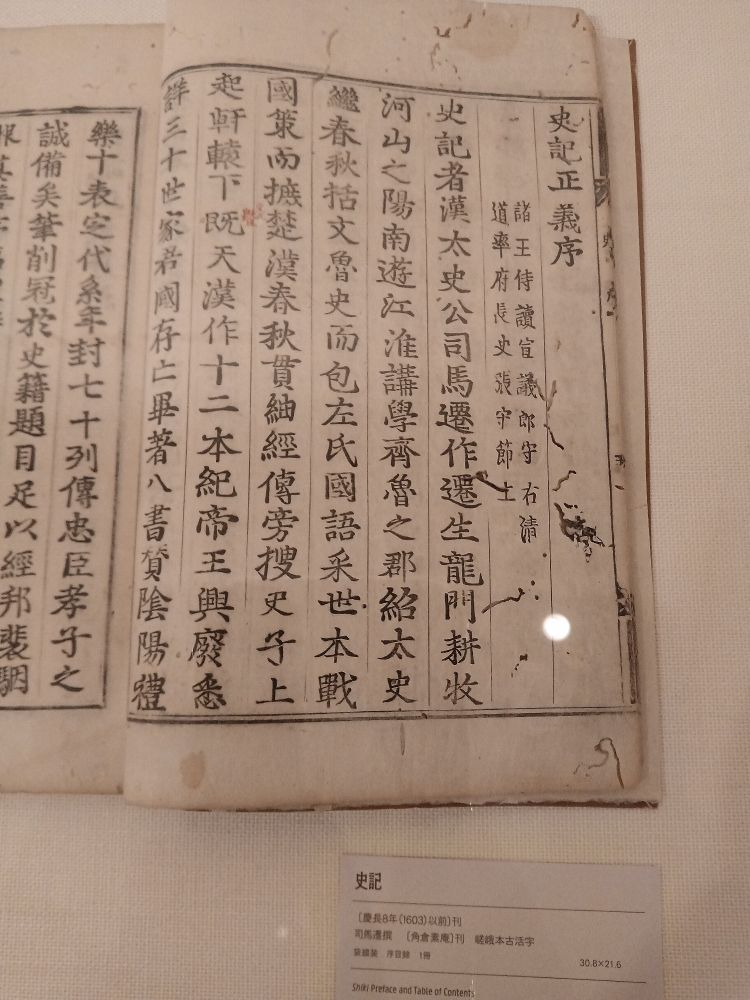 史記正義序
諸王侍讀宣議郎守右清
道率府長史張守節上
史記者漢太史公司馬遷作遷生龍門耕牧
河山之陽南遊江淮講學齊魯之郡紹太史
繼春秋括文魯史而包左氏國語采世本戰
國策而摭楚漢春秋貫紬經傳旁搜史子上
起軒轅下既天漢作十二本紀帝王興廢悉
詳三十世家君國存亡畢著八書贊陰陽禮
樂十表定代系年封七十列傳忠臣孝子之
誠備矣筆削冠於史籍題目足以經邦裴駰
史記
〔慶長8年(1603)以前〕刊
司馬遷撰 〔角倉素庵〕刊 嵯峨本古活字
袋綴装 序目録 1冊
30.8×21.6
Shiki Preface and Table of Contents